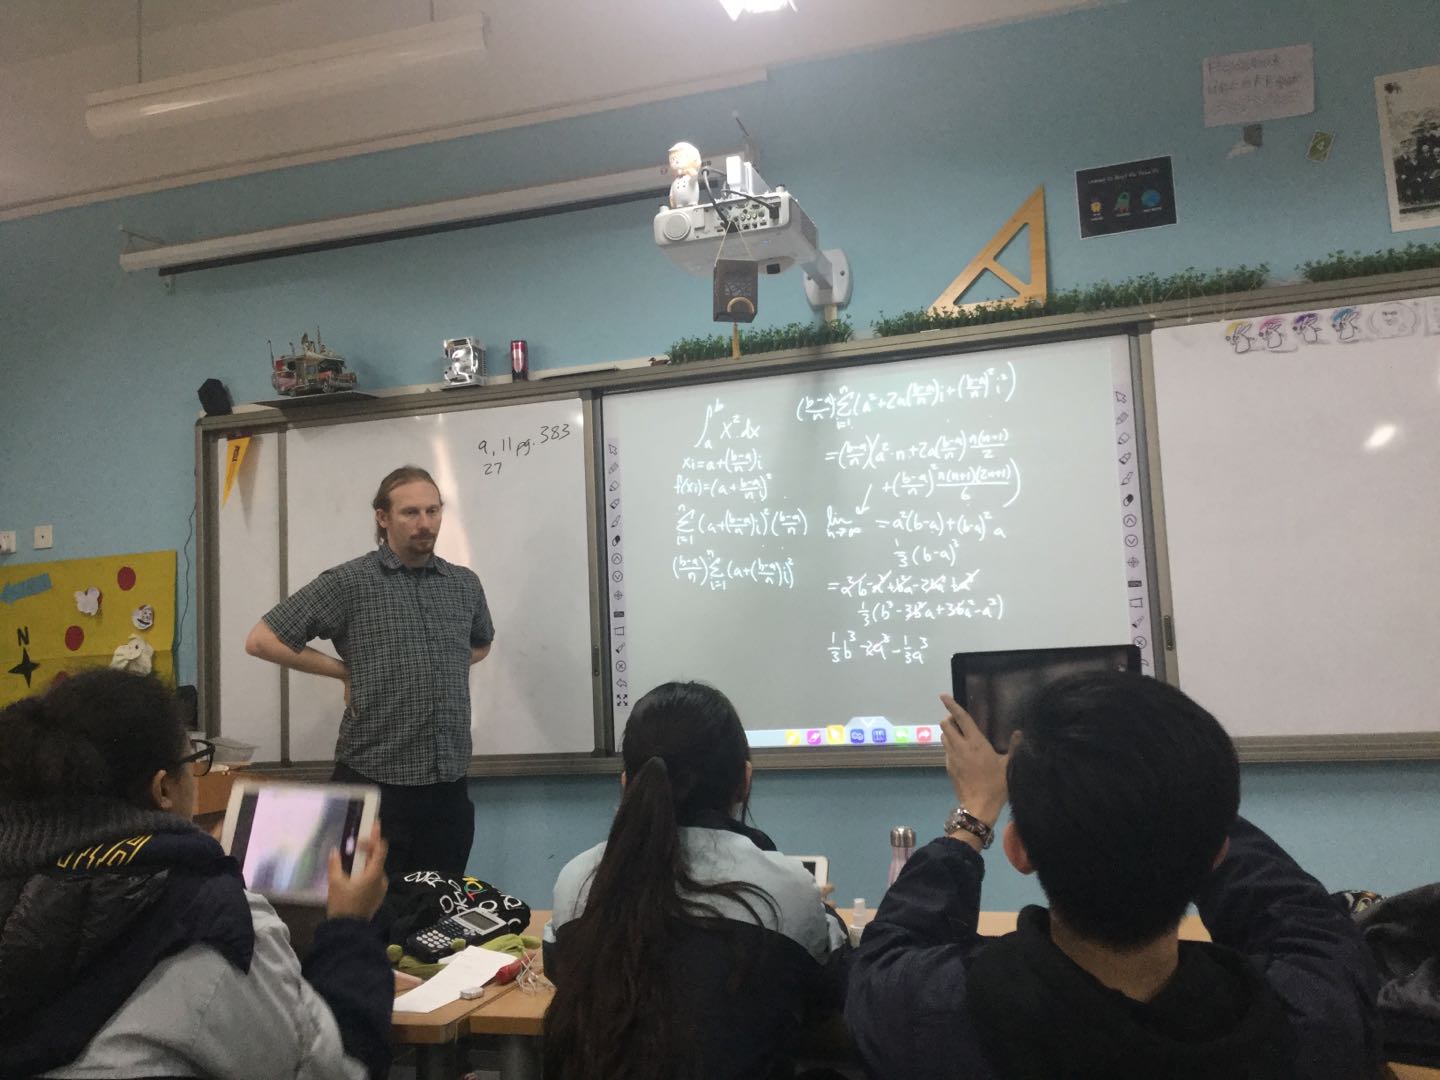 9, 11 pg. 383
27
∫ₐᵇ x² dx
xᵢ = a + ((b-a)/n)i
f(xᵢ) = (a + (b-a)/n i)²
∑ᵢ₌₁ⁿ (a + ((b-a)/n)i)² ((b-a)/n)
((b-a)/n) ∑ᵢ₌₁ⁿ (a + ((b-a)/n)i)²
((b-a)/n) ∑ᵢ₌₁ⁿ (a² + 2a((b-a)/n)i + ((b-a)/n)² i²)
= ((b-a)/n)(a²·n + 2a((b-a)/n) n(n+1)/2
+ ((b-a)/n)² n(n+1)(2n+1)/6)
lim n→∞ = a²(b-a) + (b-a)² a
1/3 (b-a)³
= a²b - a³ + b²a - 2ba² + a³
1/3 (b³ - 3b²a + 3ba² - a³)
1/3 b³ - 1/3 a³
N
4